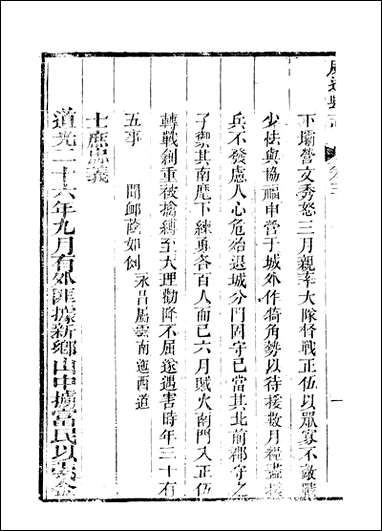 不壩營文秀怒三月親率大隊督戰正伍以眾寡不敵戰
少怯與協福申營于城外作犄角勢以待接救月糧盡援
兵不發慮人心危殆退城分門固守已當其北前郡守之
子禦其南麾下練勇各百人而已六月賊火南門入正伍
轉戰創重被擒縛至大理勸降不屈遂遇害時年三十有
五事聞卹蔭如例永昌屬雲南迤西道
士庶忠義
道光二十六年九月有外匪據新鄉山中擄富民以索金